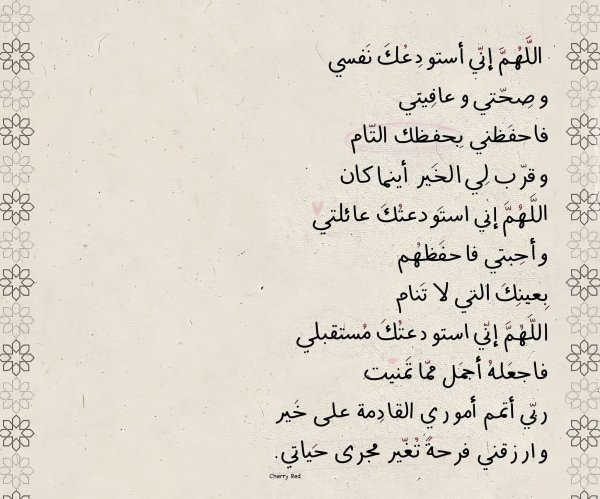 اللَّهُمَّ إنّي أستودِعْكَ نَفسي
و صِحّتي و عافيتي
فاحفَظني بِحفظك التّام
وقرّب لي الخَير أينما كان
اللَّهُمَّ إني استَودعتُكَ عائلتي
وأحِبتي فاحفَظهُم
بِعينِكَ التي لا تَنام
اللَّهُمَّ إنّي استودعتُكَ مُستقبلي
فاجعَلهُ أجمَل ممّا تَمنيت
ربّي أتمم أموري القادِمة على خَير
وارزقني فرحةً تُغيّر مجرى حَياتي.
Cherry Red